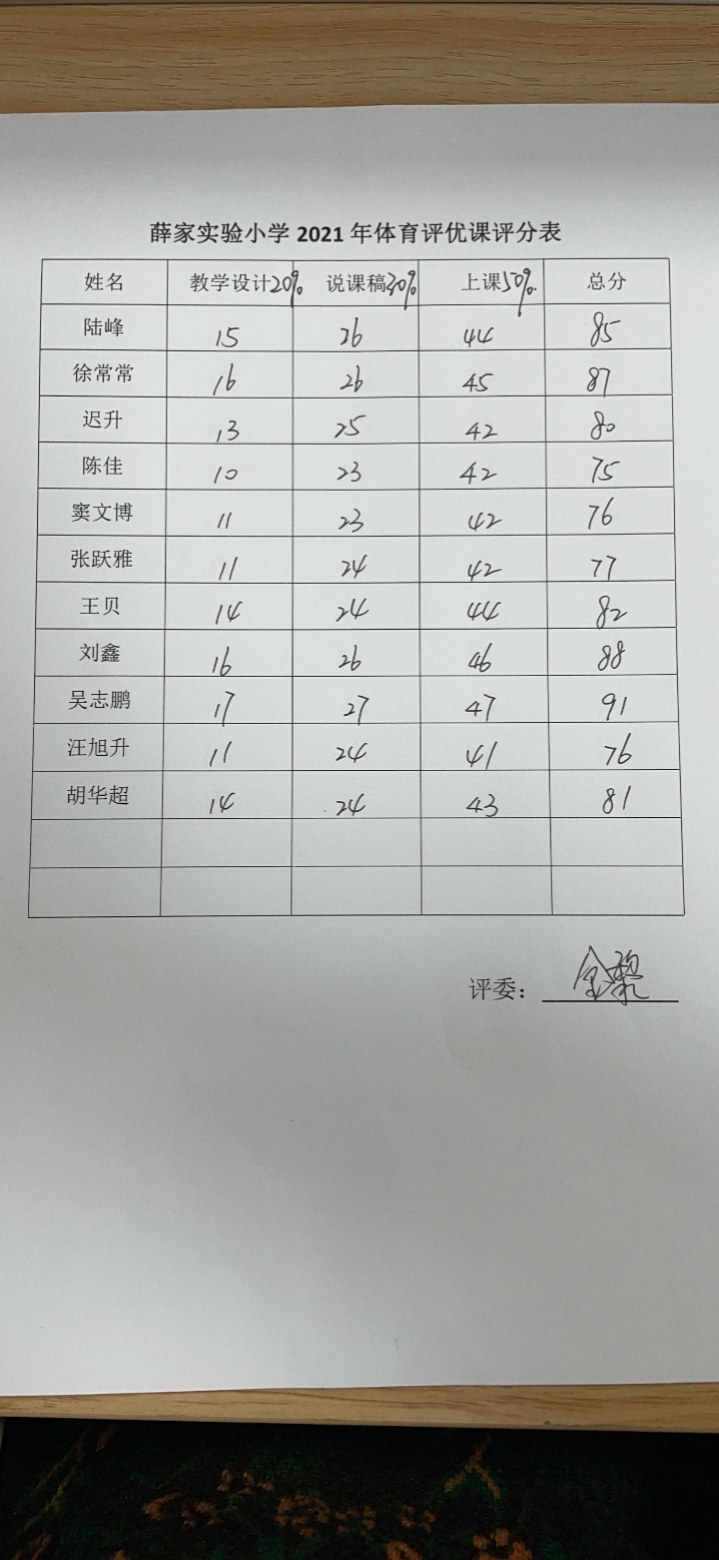 薛家实验小学 2021 年体育评优课评分表
姓名 教学设计20% 说课稿30% 上课50% 总分
陆峰 15 26 44 85
徐常常 16 26 45 87
迟升 13 25 42 80
陈佳 10 23 42 75
窦文博 11 23 42 76
张跃雅 11 24 42 77
王贝 14 24 44 82
刘鑫 16 26 46 88
吴志鹏 17 27 47 91
汪旭升 11 24 41 76
胡华超 14 24 43 81
评委：